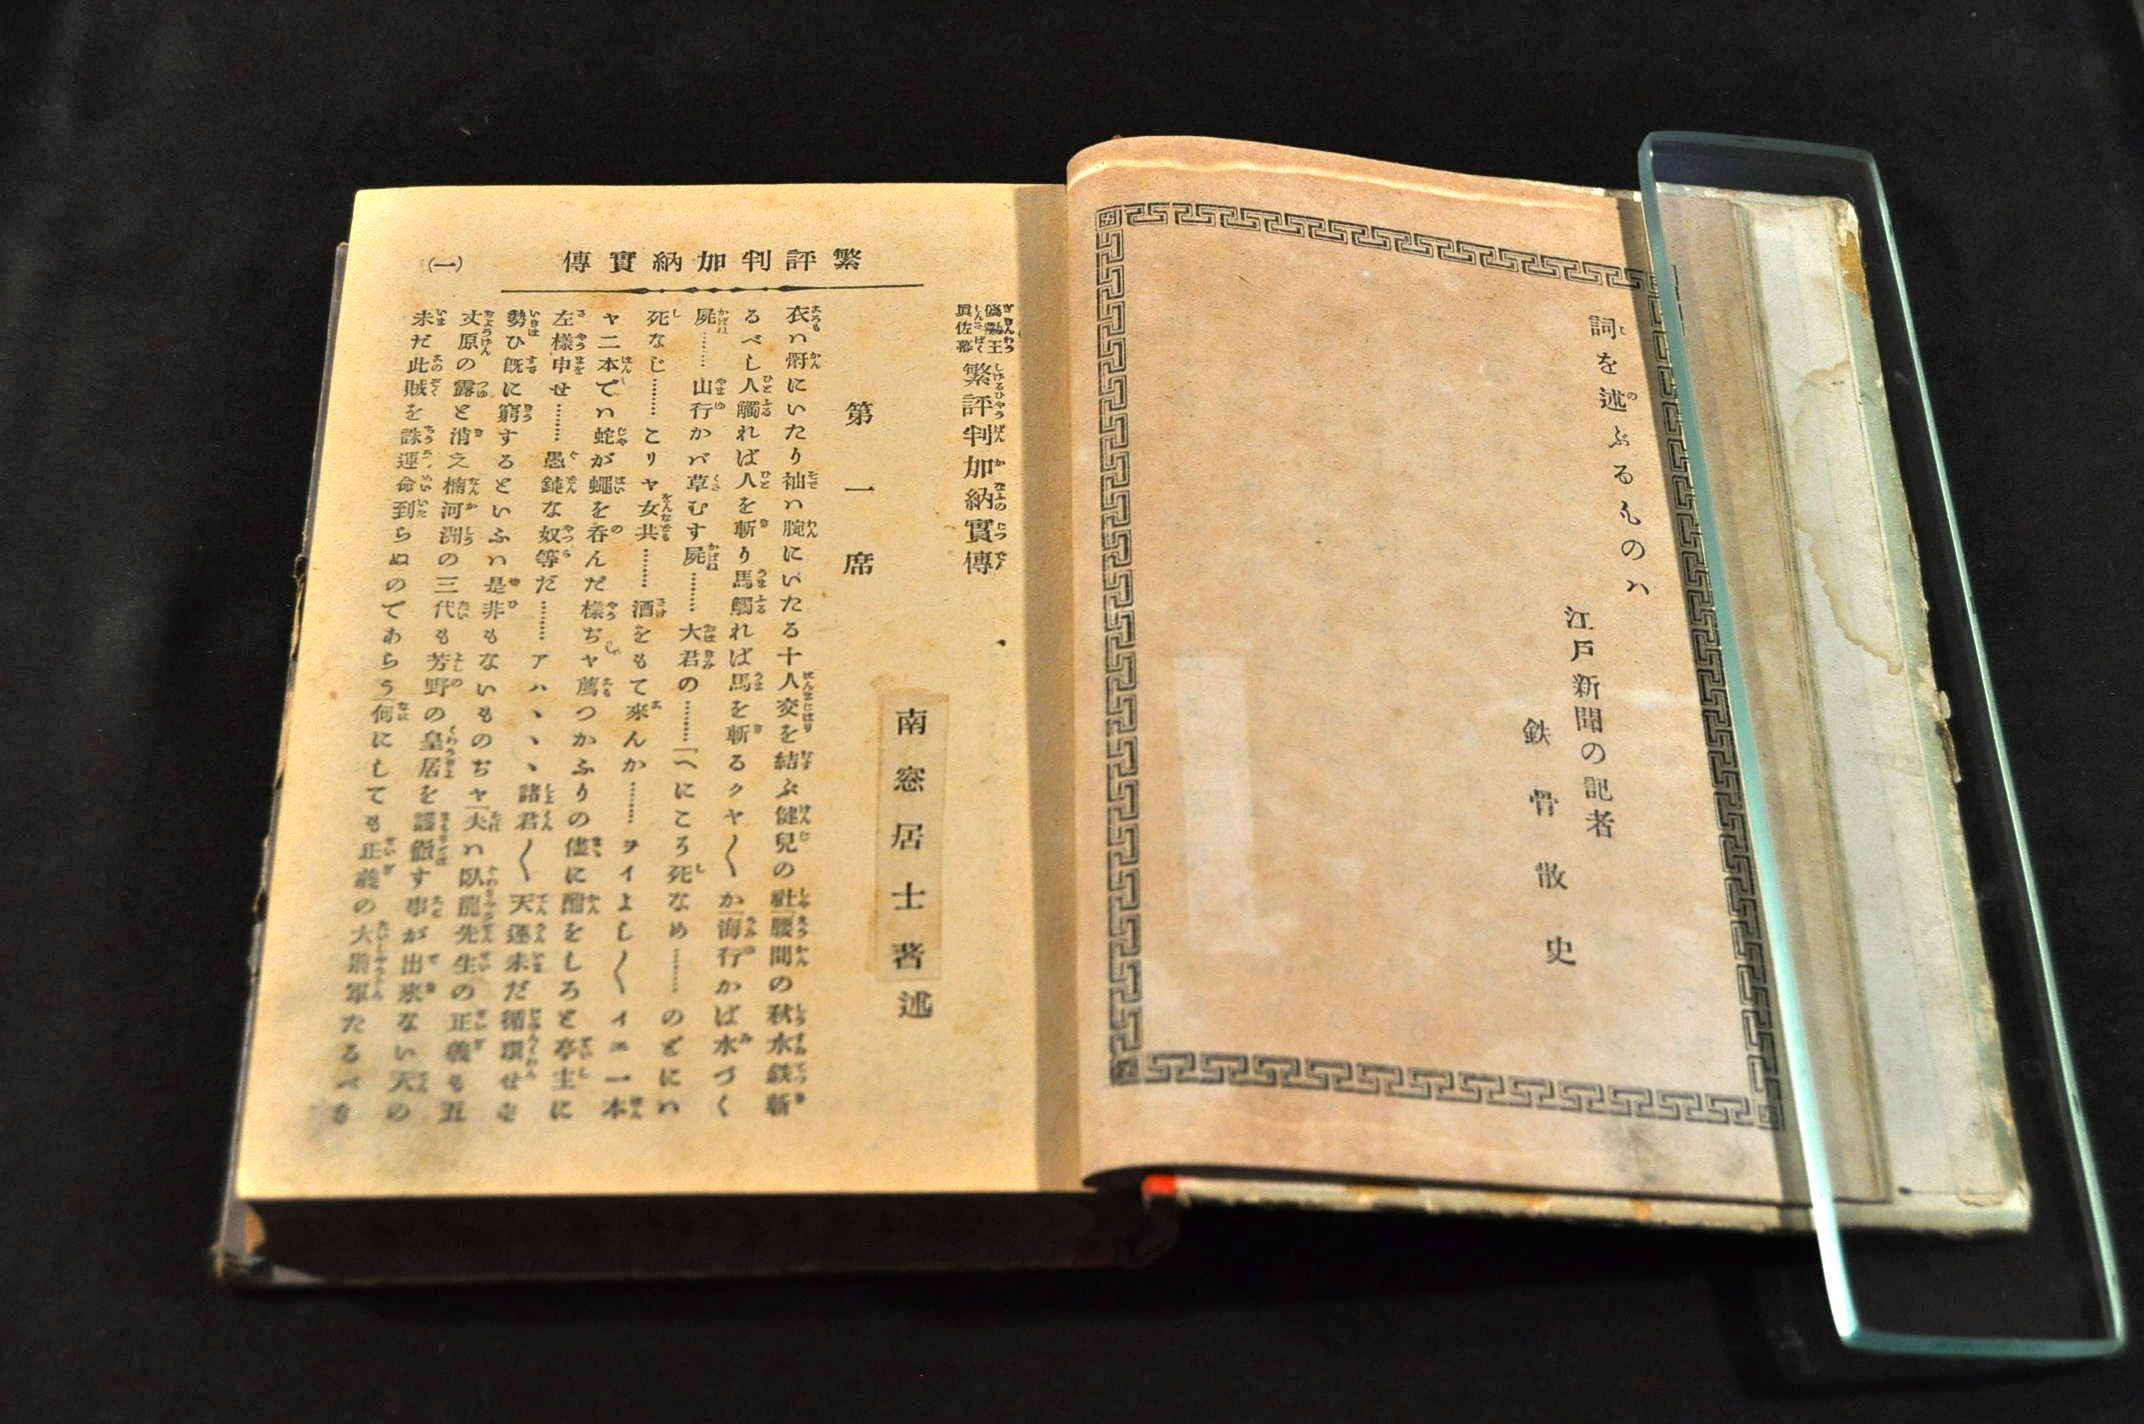 詞を述ぶるものハ
江戸新聞の記者
鉄骨散史
繁評判加納實傳
(一)
偽勤王
眞佐幕
繁評判加納實傳
第一席
南窓居士著述
衣ハ骭にいたり袖ハ腕にいたる十人交を結ぶ健兒の社「腰間の秋水鉄斬
るべし人觸れば人を斬り馬觸れば馬を斬るクヤ〱か「海行かば水づく
屍………山行かバ草むす屍………大君の………「へにころ死なめ………のどにハ
死なじ………こりャ女共………酒をもて來んか………ヲイよし〱イエ一本
ャ二本でハ蛇が蠅を呑んだ樣ぢャ薦つかふりの儘に酣をしろと亭主に
左樣申せ………愚鈍な奴等だ………アハヽヽヽ諸君〱天運未だ循環せず
勢ひ既に窮するといふハ是非もないものぢャ「夫ハ臥龍先生の正義も五
丈原の露と消之楠河洲の三代も芳野の皇居を護衛す事が出來ない天の
未だ此賊を誅運命到らぬのであらう「何にしても正義の大將軍たるべき